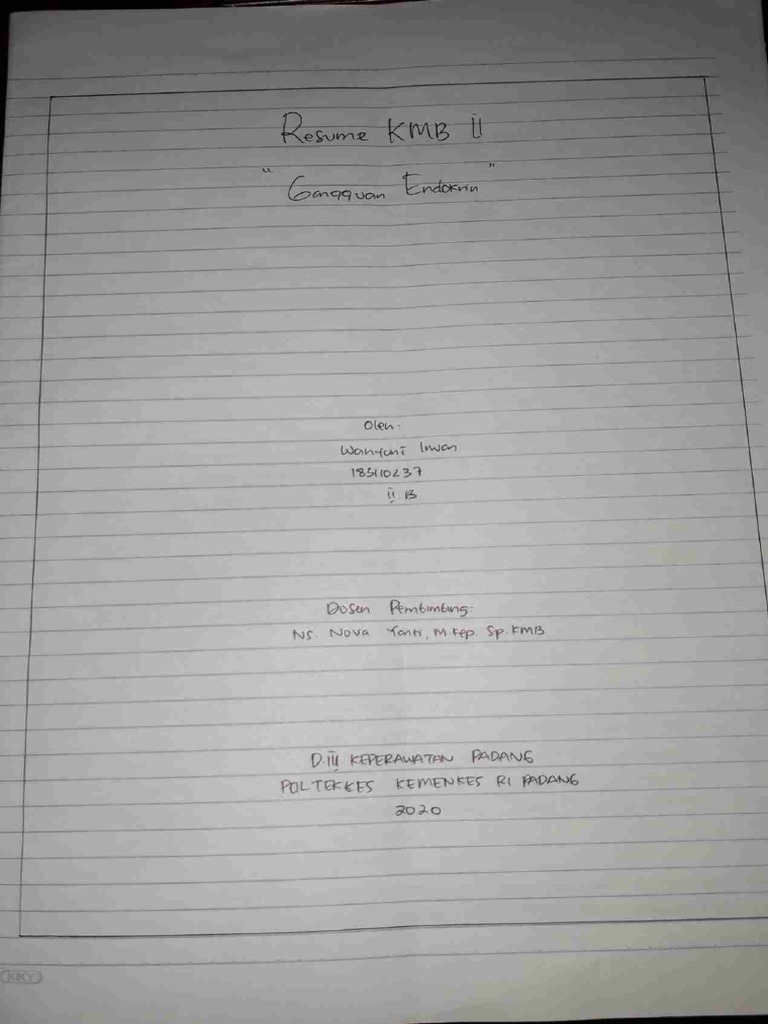 Resume KMB II
" Gangguan Endokrin "
Oleh:
Wahyuni Irwan
183110237
II.B
Dosen Pembimbing:
Ns. Nova Yanti, M.Kep. Sp.KMB
D.III KEPERAWATAN PADANG
POLTEKKES KEMENKES RI PADANG
2020
KKY